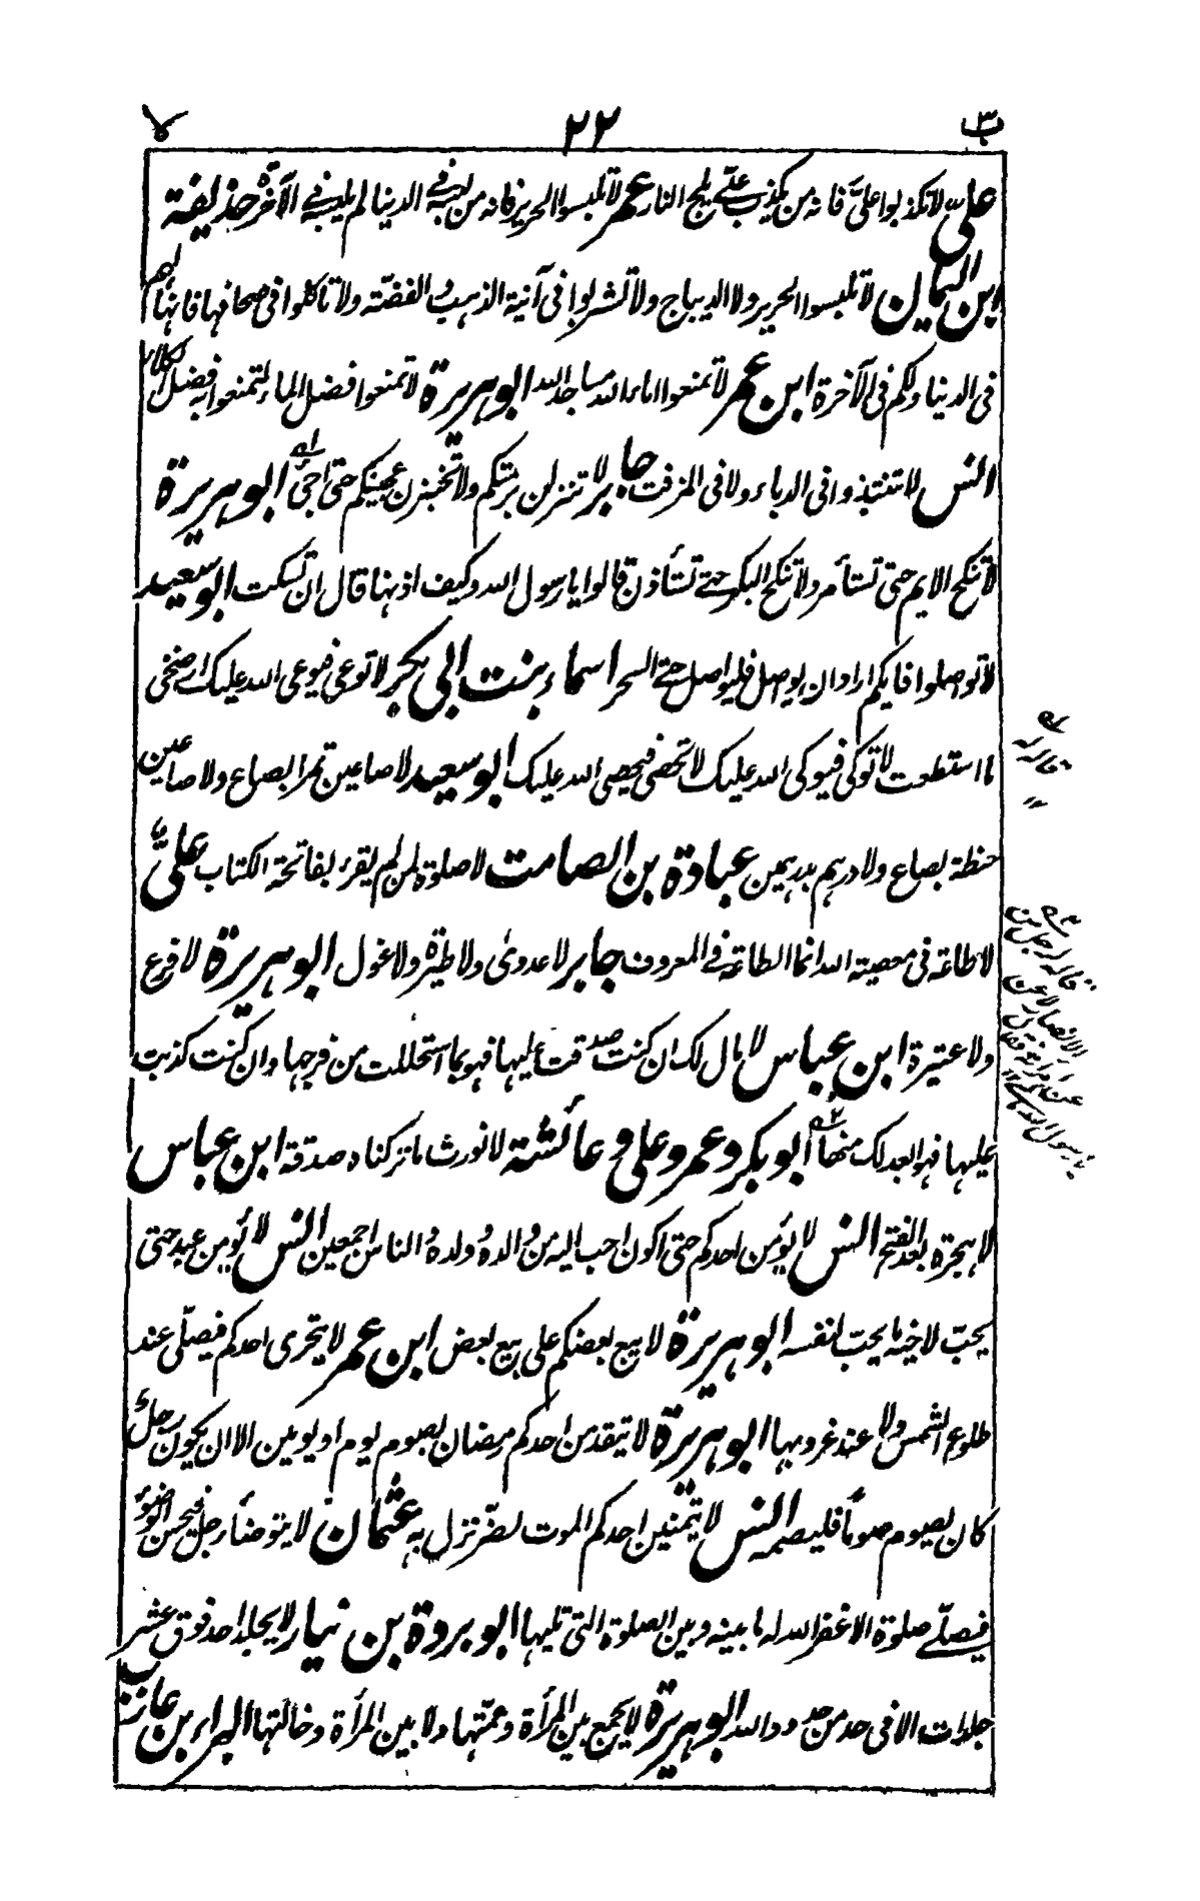 ب ٣ ٢٢ لا
علىّ لا تكذبوا علىّ فانه من يكذب علىّ يلج النار عمر لا تلبسوا الحرير فانه من لبسه فى الدنيا لم يلبسه فى الآخرة حذيفة
ابن اليمان لا تلبسوا الحرير ولا الديباج ولا تشربوا فى آنية الذهب والفضّة ولا تاكلوا فى صحافها فانها لهم
فى الدنيا ولكم فى الآخرة ابن عمر لا تمنعوا اماء الله مساجد الله ابو هريرة لا تمنعوا فضل الماء لتمنعوا به فضل الكلاء
انس لا تنتبذوا فى الدباء ولا فى المزفت جابر لا تنزلن برمتكم ولا تخبزن عجينكم حتى اجئ ابو هريرة
لا تنكح الايم حتى تستأمر ولا تنكح البكر حتے تستأذن قالوا يا رسول الله وكيف اذنها قال ان تسكت ابو سعيد
لا تواصلوا فايكم اراد ان يواصل فليواصل حتے السحر اسماء بنت ابى بكر لا توعى فيوعى الله عليك ارضخى
ما استطعت لا توكى فيوكى الله عليك لا تحصى فيحصى الله عليك ابو سعيد لا صاعين تمرا بصاع ولا صاعين
حنطة بصاع ولا درهم بدرهمين عبادة بن الصامت لا صلوة لمن لم يقرء بفاتحة الكتاب علىّ
لا طاعة فى معصية الله انما الطاعة فے المعروف جابر لا عدوى ولا طيرة ولا غول ابو هريرة لا فرع
ولا عتيرة ابن عباس لا مال لك ان كنت صدقت عليها فهو بما استحللت من فرجها وان كنت كذبت
عليها فهو ابعد لك منها ابو بكر وعمر وعلى وعائشة لا نورث ما تركناه صدقة ابن عباس
لا هجرة بعد الفتح انس لا يؤمن احدكم حتى اكون احب اليه من والده وولده والناس اجمعين انس لا يؤمن عبد حتى
يحبّ لاخيه ما يحبّ لنفسه ابو هريرة لا يبيع بعضكم على بيع بعض ابن عمر لا يتحرى احدكم فيصلّى عند
طلوع الشمس ولا عند غروبها ابو هريرة لا يتقدمن احدكم رمضان بصوم يوم او يومين الا ان يكون رجل
كان يصوم صوماً فليصمه انس لا يتمنين احدكم الموت لضرّ نزل به عثمان لا يتوضأ رجل فيحسن الوضوء
فيصلّے صلوة الا غفر الله له ما بينه وبين الصلوة التى تليها ابو بردة بن نيار لا يجلد احد فوق عشر
جلدات الا فى حد من حدود الله ابو هريرة لا يجمع بين المرأة وعمّتها ولا بين المرأة وخالتها البراء بن عازب
قاله له
قاله لرجل من
الانصار
يا رسول الله